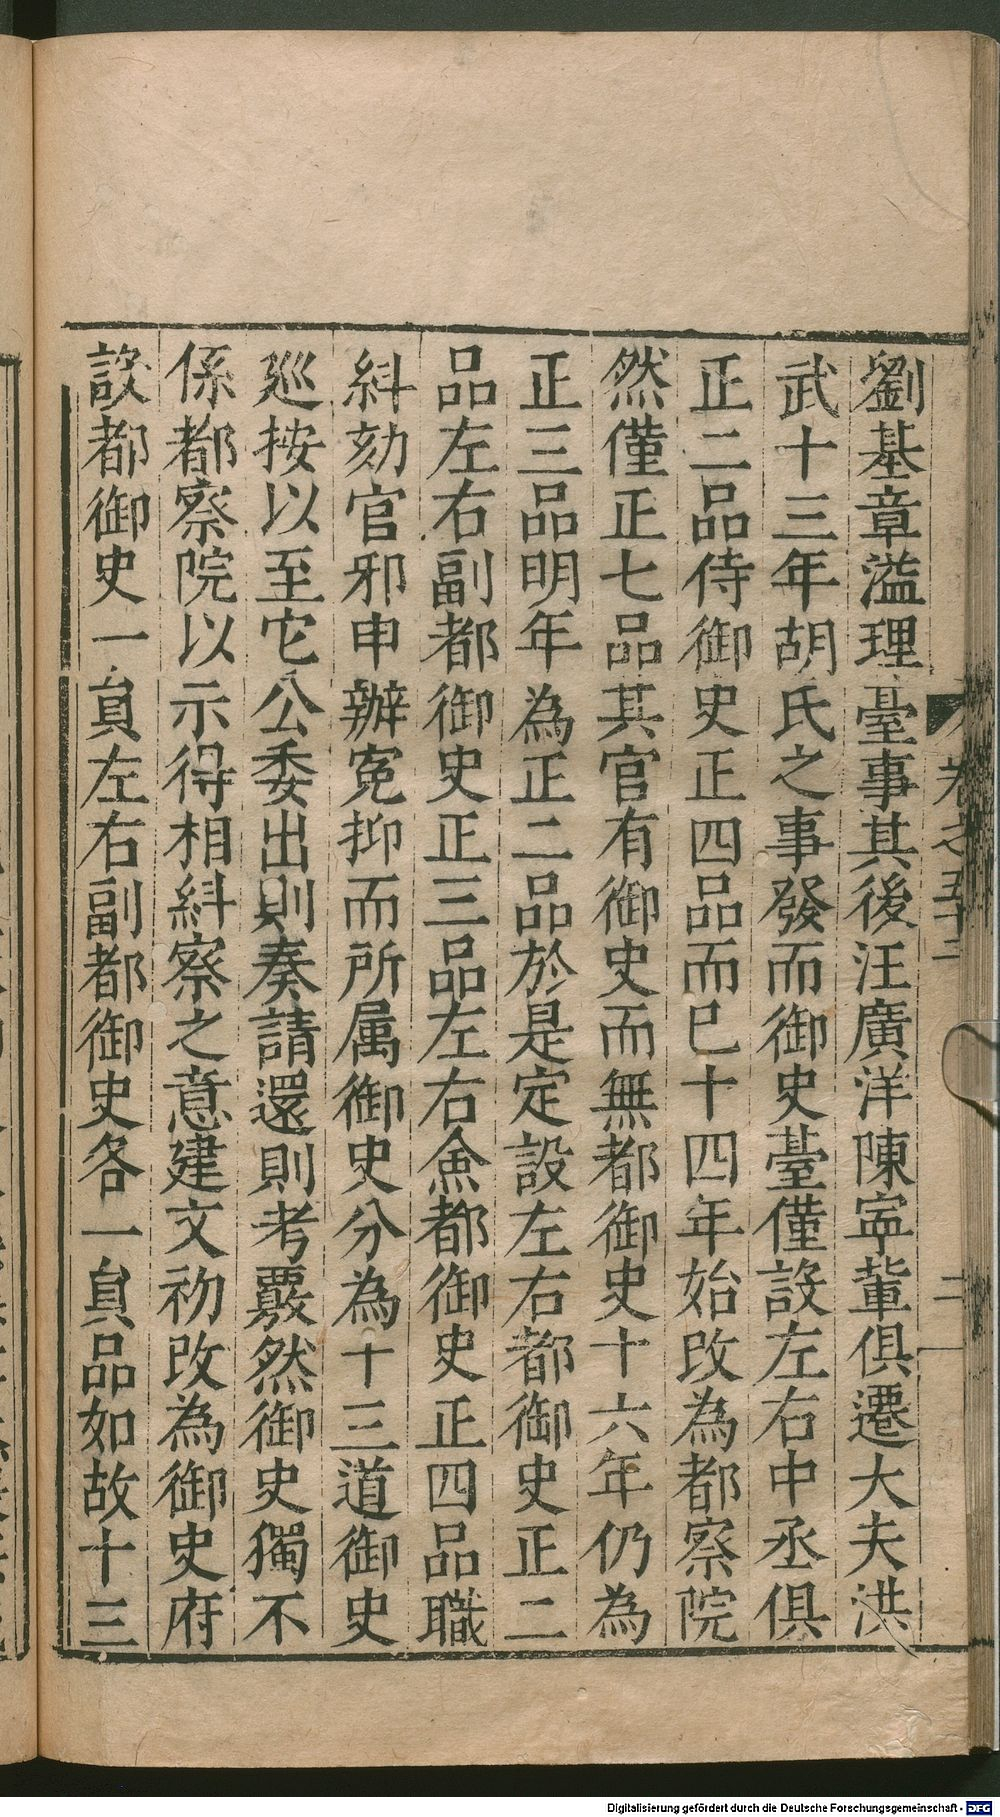 劉基章溢理臺事其後汪廣洋陳寧輩俱遷大夫洪
武十三年胡氏之事發而御史臺僅設左右中丞俱
正二品侍御史正四品而已十四年始改為都察院
然僅正七品其官有御史而無都御史十六年仍為
正三品明年為正二品於是定設左右都御史正二
品左右副都御史正三品左右僉都御史正四品職
糾劾官邪申辦冤抑而所属御史分為十三道御史
廵按以至它公委出則奏請還則考覈然御史獨不
係都察院以示得相糾察之意建文初改為御史府
設都御史一員左右副都御史各一員品如故十三
卷之五十二
二
Digitalisierung gefördert durch die Deutsche Forschungsgemeinschaft - DFG